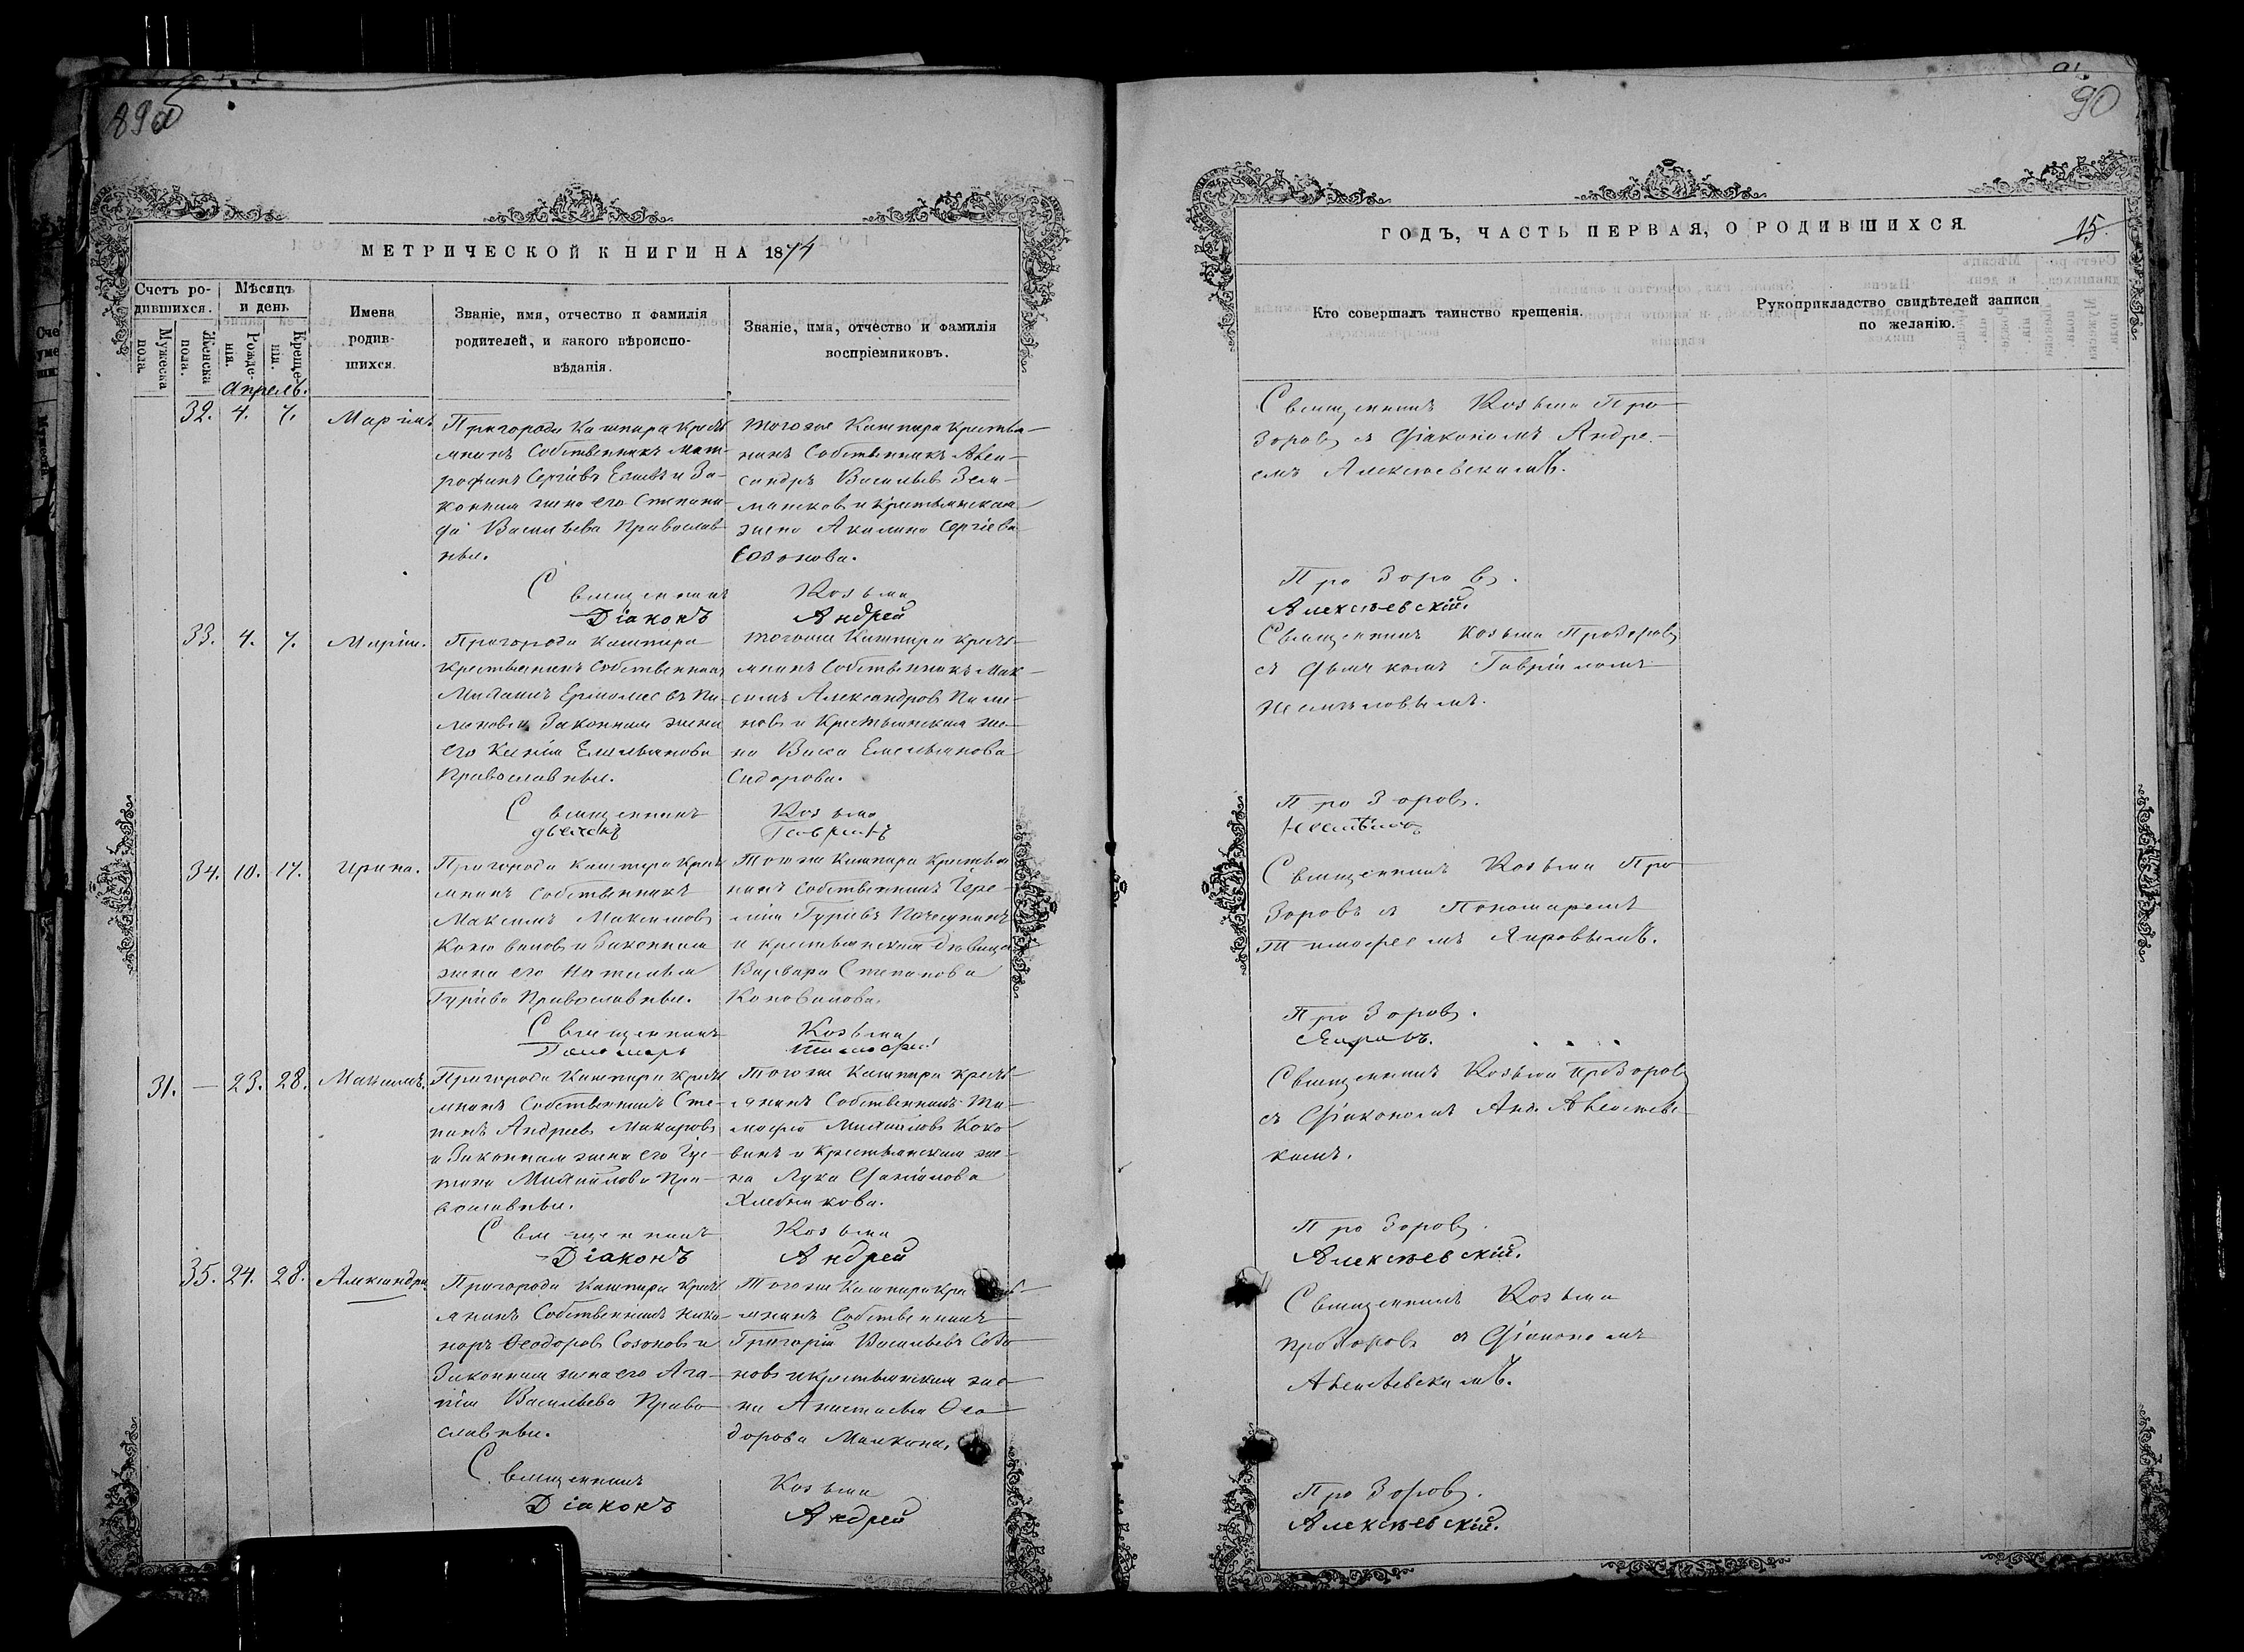 89об
МЕТРИЧЕСКОЙ КНИГИ НА 1874
Счетъ родившихся.
Мужеска пола.
Женска пола.
Мѣсяцъ и день
Рожденія.
Крещенія.
Имена родившихся.
Званіе, имя, отчество и фамилія
родителей, и какого вѣроиспо-
вѣданія.
Званіе, имя, отчество и фамилія
воспріемниковъ.
Апрель.
32. 4. 7.
Пригорода Кашпира кресть
янинъ Собственникъ Мит-
рофанъ Сергіевъ и За-
конная жена его Степани-
да Васильева Православ-
ные.
тогоже Кашпира крестья-
нинъ Собственникъ Алек-
сандръ Васильевъ
и крестьянская
жена Акилина Сергіева
Созонова.
Священникъ Козьма
Діаконъ Андрей
33. 4. 7. Марія.
Пригорода Кашпира
крестьянинъ Собственникъ
Ермолаевъ Пи-
меновъ и Законная жена
его Ксенія Емельянова
Православные.
тогоже Кашпира кресть-
янинъ Собственникъ Мак-
симъ Александровъ Пиме-
новъ и Крестьянская же-
на Васса Емельянова
Сидорова.
Священникъ Козьма
дьячекъ Гавріилъ
34. 10. 17. Ирина.
Пригорода Кашпира кресть
янинъ Собственникъ
Максимъ Максимовъ
Коноваловъ и Законная
жена его Наталья
Гуріева Православные.
Тогоже Кашпира крестья
нинъ Собственникъ Іере-
мія Гуріевъ
и крестьянская дѣвица
Варвара Степанова
Коновалова.
Священникъ Козьма
Пономарь Тимофей
31. — 23. 28. Максимъ.
Пригорода Кашпира кресть
янинъ Собственникъ Сте-
панъ Андреевъ Макаровъ
и Законная жена его Іус-
тина Михайлова Пра-
вославные.
Тогоже Кашпира кресть-
янинъ Собственникъ Ти-
мофей Михайловъ Коко-
винъ и Крестьянская же-
на
Хлебникова.
Священникъ Козьма
Діаконъ Андрей
35. 24. 28. Александра.
Пригорода Кашпира кресть
янинъ Собственникъ Ника-
норъ Ѳеодоровъ Созоновъ и
Законная жена его Ага-
пія Васильева Право-
славные.
Тогоже Кашпира кре
янинъ Собственникъ
Григорій Васильевъ Созо-
новъ и крестьянская же-
на Анастасія Ѳео-
дорова Малкина.
Священникъ Козьма
Діаконъ Андрей
90
ГОДЪ, ЧАСТЬ ПЕРВАЯ, О РОДИВШИХСЯ.
15.
Кто совершалъ таинство крещенія.
Рукоприкладство свидѣтелей записи
по желанію.
Священникъ Козьма Про-
зоровъ съ Діакономъ Андре-
емъ Алексѣевскимъ.
Прозоровъ.
Алексѣевскій.
Священникъ Козьма Прозоровъ
съ дьячкомъ Гавріиломъ
Прозоровъ.
Священникъ Козьма Про-
зоровъ съ Пономаремъ
Тимофеемъ Яировымъ.
Прозоровъ.
Яировъ.
Священникъ Козьма Прозоровъ
съ Діакономъ Анд. Алексѣевс-
кимъ.
Прозоровъ.
Алексѣевскій.
Священникъ Козьма
Прозоровъ съ Діакономъ
Алексѣевскимъ.
Прозоровъ.
Алексѣевскій.